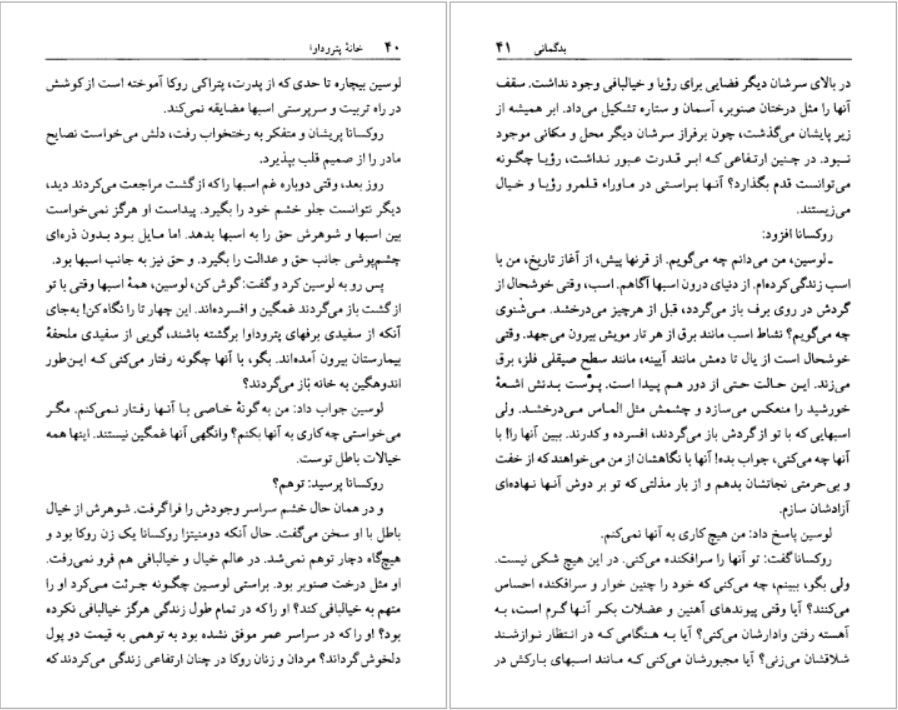 ۴۰ خانهٔ پتروداوا
لوسین بیچاره تا حدی که از پدرت، پتراکی روکا آموخته است از کوشش
در راه تربیت و سرپرستی اسبها مضایقه نمی‌کند.
روکسانا پریشان و متفکر به رختخواب رفت، دلش می‌خواست نصایح
مادر را از صمیم قلب بپذیرد.
روز بعد، وقتی دوباره غم اسبها را که از گشت مراجعت می‌کردند دید،
دیگر نتوانست جلو خشم خود را بگیرد. پیداست او هرگز نمی‌خواست
بین اسبها و شوهرش حق را به اسبها بدهد. اما مایل بود بدون ذره‌ای
چشم‌پوشی جانب حق و عدالت را بگیرد. و حق نیز به جانب اسبها بود.
پس رو به لوسین کرد و گفت: گوش کن، لوسین، همهٔ اسبها وقتی با تو
از گشت باز می‌گردند غمگین و افسرده‌اند. این چهار تا را نگاه کن! به‌جای
آنکه از سفیدی برفهای پتروداوا برگشته باشند، گویی از سفیدی ملحفهٔ
بیمارستان بیرون آمده‌اند. بگو، با آنها چگونه رفتار می‌کنی که این‌طور
اندوهگین به خانه باز می‌گردند؟
لوسین جواب داد: من به گونهٔ خاصی با آنها رفتار نمی‌کنم. مگر
می‌خواستی چه کاری به آنها بکنم؟ وانگهی آنها غمگین نیستند. اینها همه
خیالات باطل توست.
روکسانا پرسید: توهم؟
و در همان حال خشم سراسر وجودش را فرا گرفت. شوهرش از خیال
باطل با او سخن می‌گفت. حال آنکه دومنیتزا روکسانا یک زن روکا بود و
هیچ‌گاه دچار توهم نمی‌شد. در عالم خیال و خیالبافی هم فرو نمی‌رفت.
او مثل درخت صنوبر بود. براستی لوسین چگونه جرئت می‌کرد او را
متهم به خیالبافی کند؟ او را که در تمام طول زندگی هرگز خیالبافی نکرده
بود؟ او را که در سراسر عمر موفق نشده بود به توهمی به قیمت دو پول
دلخوش گرداند؟ مردان و زنان روکا در چنان ارتفاعی زندگی می‌کردند که
بدگمانی ۴۱
در بالای سرشان دیگر فضایی برای رؤیا و خیالبافی وجود نداشت. سقف
آنها را مثل درختان صنوبر، آسمان و ستاره تشکیل می‌داد. ابر همیشه از
زیر پایشان می‌گذشت، چون برفراز سرشان دیگر محل و مکانی موجود
نبود. در چنین ارتفاعی که ابر قدرت عبور نداشت، رؤیا چگونه
می‌توانست قدم بگذارد؟ آنها براستی در ماوراء قلمرو رؤیا و خیال
می‌زیستند.
روکسانا افزود:
ـ لوسین، من می‌دانم چه می‌گویم. از قرنها پیش، از آغاز تاریخ، من با
اسب زندگی کرده‌ام. از دنیای درون اسبها آگاهم. اسب، وقتی خوشحال از
گردش در روی برف باز می‌گردد، قبل از هرچیز می‌درخشد. می‌شنوی
چه می‌گویم؟ نشاط اسب مانند برق از هر تار مویش بیرون می‌جهد. وقتی
خوشحال است از یال تا دمش مانند آیینه، مانند سطح صیقلی فلز، برق
می‌زند. این حالت حتی از دور هم پیدا است. پوست بدنش اشعهٔ
خورشید را منعکس می‌سازد و چشمش مثل الماس می‌درخشد. ولی
اسبهایی که با تو از گردش باز می‌گردند، افسرده و کدرند. ببین آنها را! با
آنها چه می‌کنی، جواب بده! آنها با نگاهشان از من می‌خواهند که از خفت
و بی‌حرمتی نجاتشان بدهم و از بار مذلتی که تو بر دوش آنها نهاده‌ای
آزادشان سازم.
لوسین پاسخ داد: من هیچ کاری به آنها نمی‌کنم.
روکسانا گفت: تو آنها را سرافکنده می‌کنی. در این هیچ شکی نیست.
ولی بگو، ببینم، چه می‌کنی که خود را چنین خوار و سرافکنده احساس
می‌کنند؟ آیا وقتی پیوندهای آهنین و عضلات بکر آنها گرم است، به
آهسته رفتن وادارشان می‌کنی؟ آیا به هنگامی که در انتظار نوازشند
شلاقشان می‌زنی؟ آیا مجبورشان می‌کنی که مانند اسبهای بارکش در